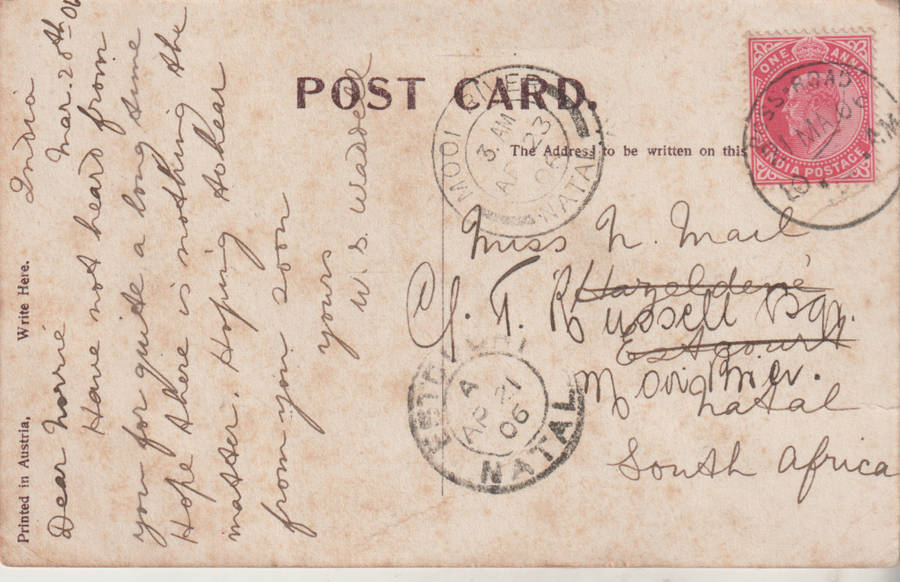 India
Mar. 20th 06
Dear Norrie
Have not heard from
you for quite a long time
Hope there is nothing the
matter. Hoping to hear
from you soon
yours
W. S. Waddell
Printed in Austria, Write Here.
POST CARD.
The Address to be written on this
ONE ANNA
INDIA POSTAGE
ROAD
MOOI RIVER
3. AM
AP 23
06
NATAL
Miss N. Mail
Hazeldene
C/o J. T. Russell Esq.
Estcourt
Mooi River.
Natal
South Africa
ESTCOURT
A
AP 21
06
NATAL